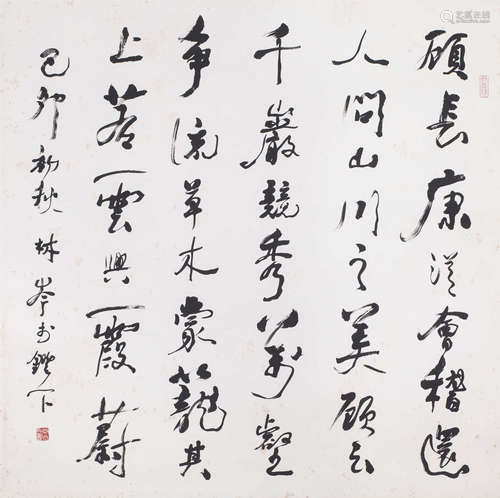 顾长康从会稽還
人問山川之美顾云
千巖競秀万壑
争流草木蒙籠其
上若雲興霞蔚
己卯初秋林岑於鐙下